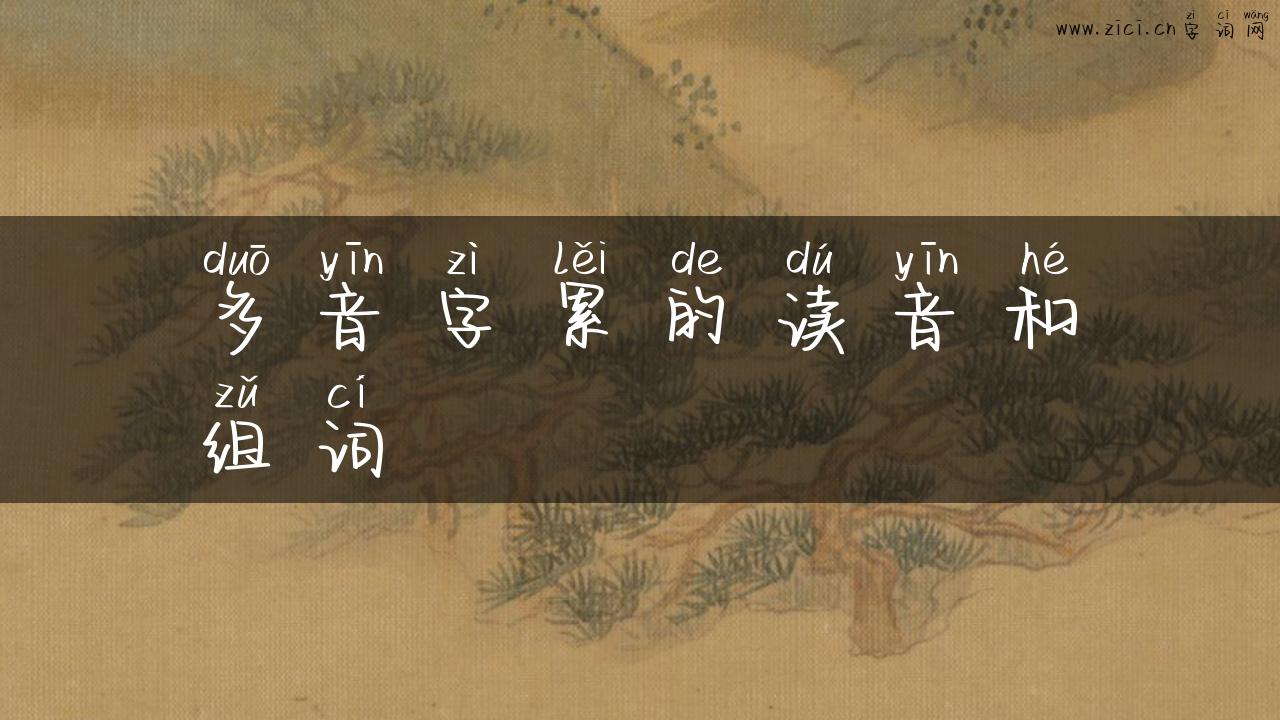 zì cí wǎng
www.zīcī.cn 字词网
duō yīn zì lěi de dú yīn hé
多音字累的读音和
zǔ cí
组词